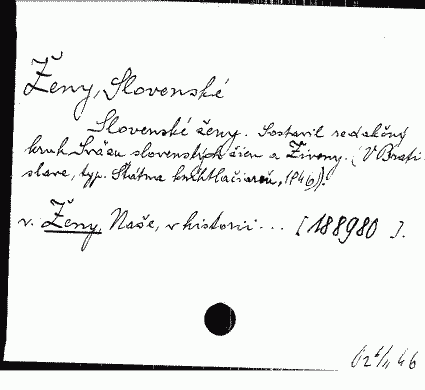 Ženy, Slovenské
Slovenské ženy. Sostavil redakčný
kruh Sväzu slovenských žien a Živeny. (V Brati-
slave, typ. Štátna kníhtlačiareň, 1946).
v. Ženy, Naše, v historii... [188980].